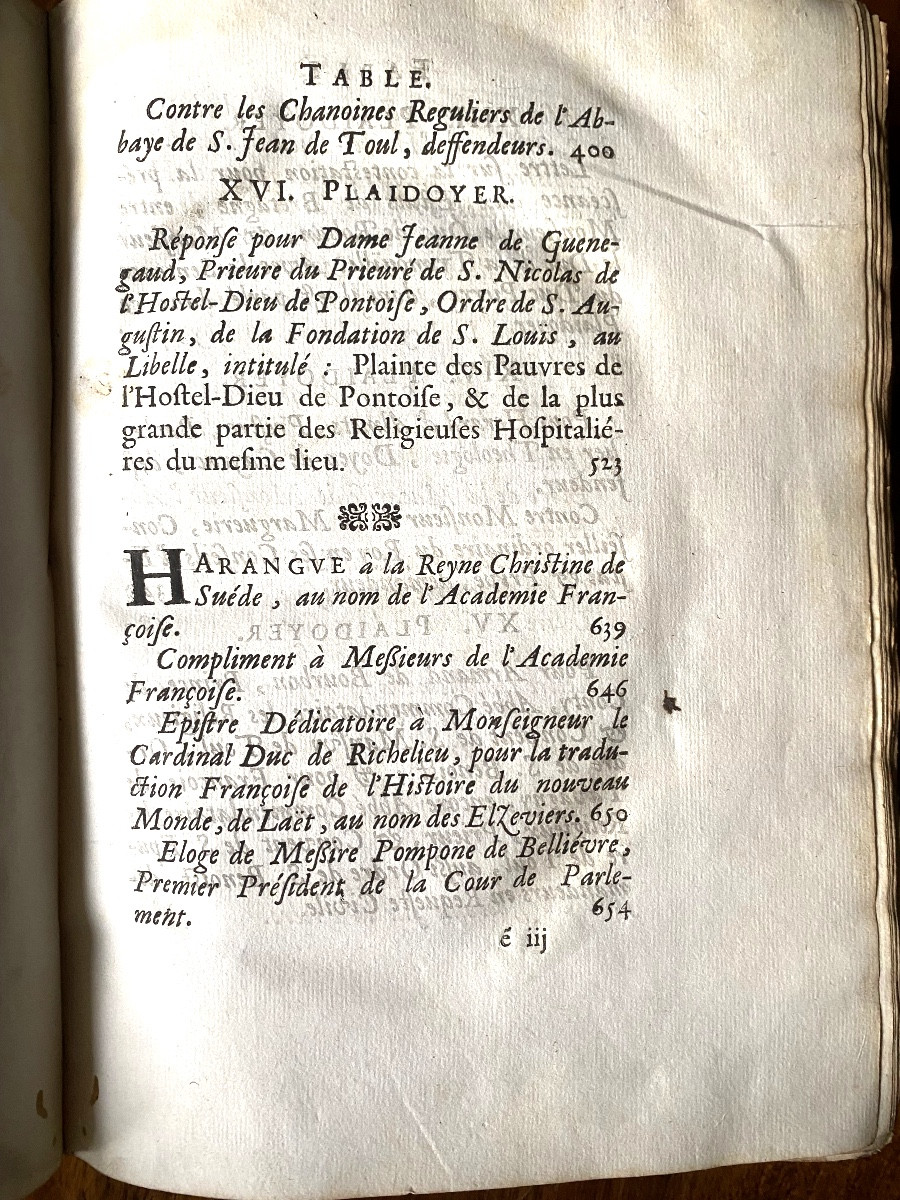 TABLE.
Contre les Chanoines Reguliers de l'Ab-
baye de S. Jean de Toul, deffendeurs. 400
XVI. PLAIDOYER.
Réponſe pour Dame Jeanne de Guene-
gaud, Prieure du Prieuré de S. Nicolas de
l'Hoſtel-Dieu de Pontoiſe, Ordre de S. Au-
guſtin, de la Fondation de S. Louïs, au
Libelle, intitulé : Plainte des Pauvres de
l'Hoſtel-Dieu de Pontoiſe, & de la plus
grande partie des Religieuſes Hoſpitalié-
res du meſme lieu. 523
HARANGVE à la Reyne Chriſtine de
Suéde, au nom de l'Academie Fran-
çoiſe. 639
Compliment à Meßieurs de l'Academie
Françoiſe. 646
Epiſtre Dédicatoire à Monſeigneur le
Cardinal Duc de Richelieu, pour la tradu-
ction Françoiſe de l'Hiſtoire du nouveau
Monde, de Laët, au nom des Elzeviers. 650
Eloge de Meßire Pompone de Belliévre,
Premier Préſident de la Cour de Parle-
ment. 654
é iij